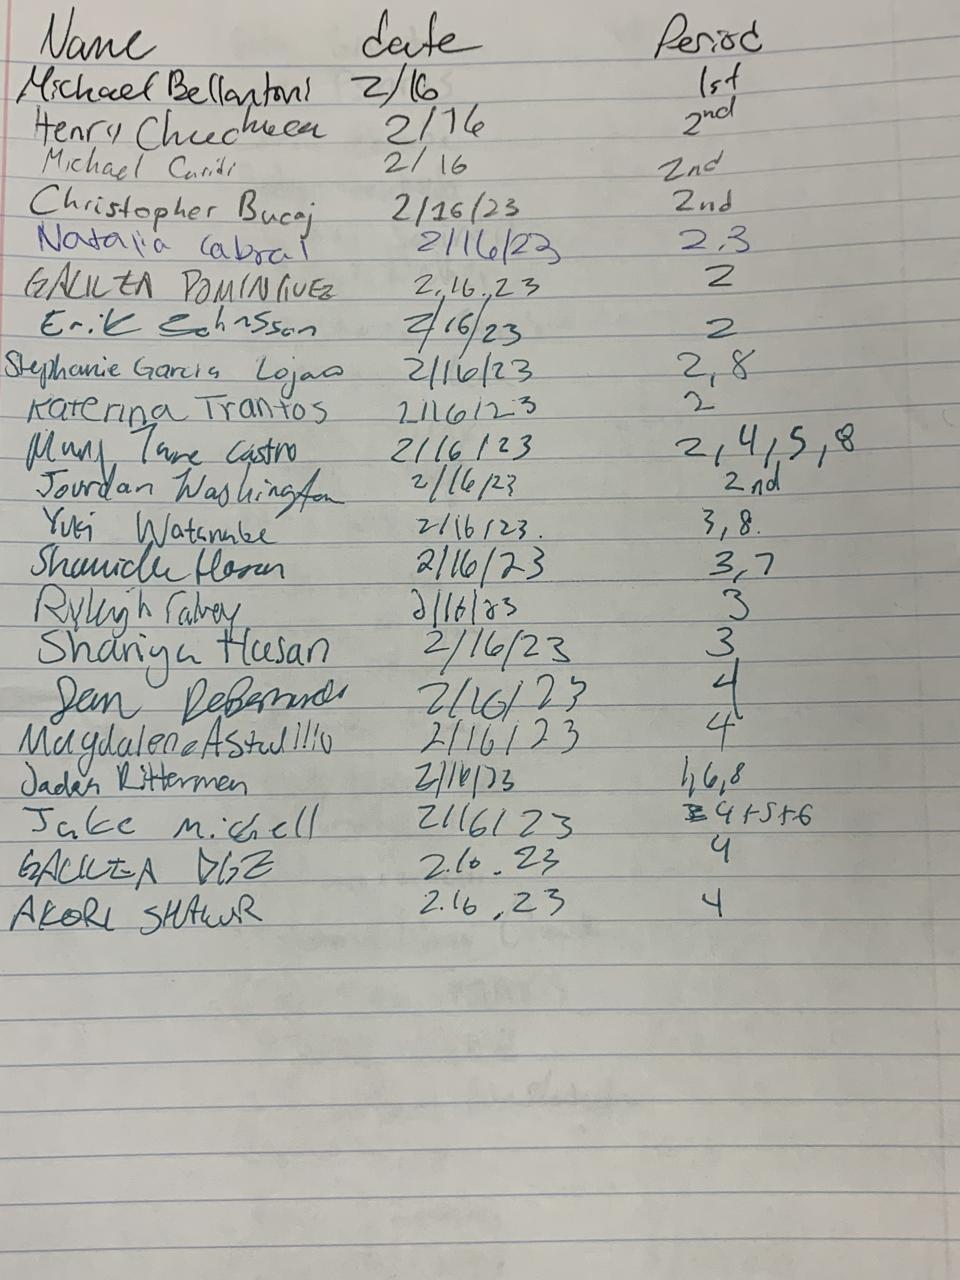 Name date Period
Michael Bellantoni 2/16 1st
Henry 2/16 2nd
Michael Caridi 2/16 2nd
Christopher Bucaj 2/16/23 2nd
Natalia Cabral 2/16/23 2,3
DOMINGUEZ 2.16.23 2
Erik 2/16/23 2
Stephanie Garcia 2/16/23 2,8
Katerina Trantos 2/16/23 2
Jane Castro 2/16/23 2,4,5,8
Jourdan Washington 2/16/23 2nd
Yuki Watanabe 2/16/23. 3,8.
2/16/23 3,7
Ryleigh Falvey 2/16/23 3
Hasan 2/16/23 3
2/16/23 4
2/16/23 4
Ritterman 2/16/23 1,6,8
Jake 2/16/23 4+5+6
2.16.23 4
AKORI SHAKUR 2.16.23 4